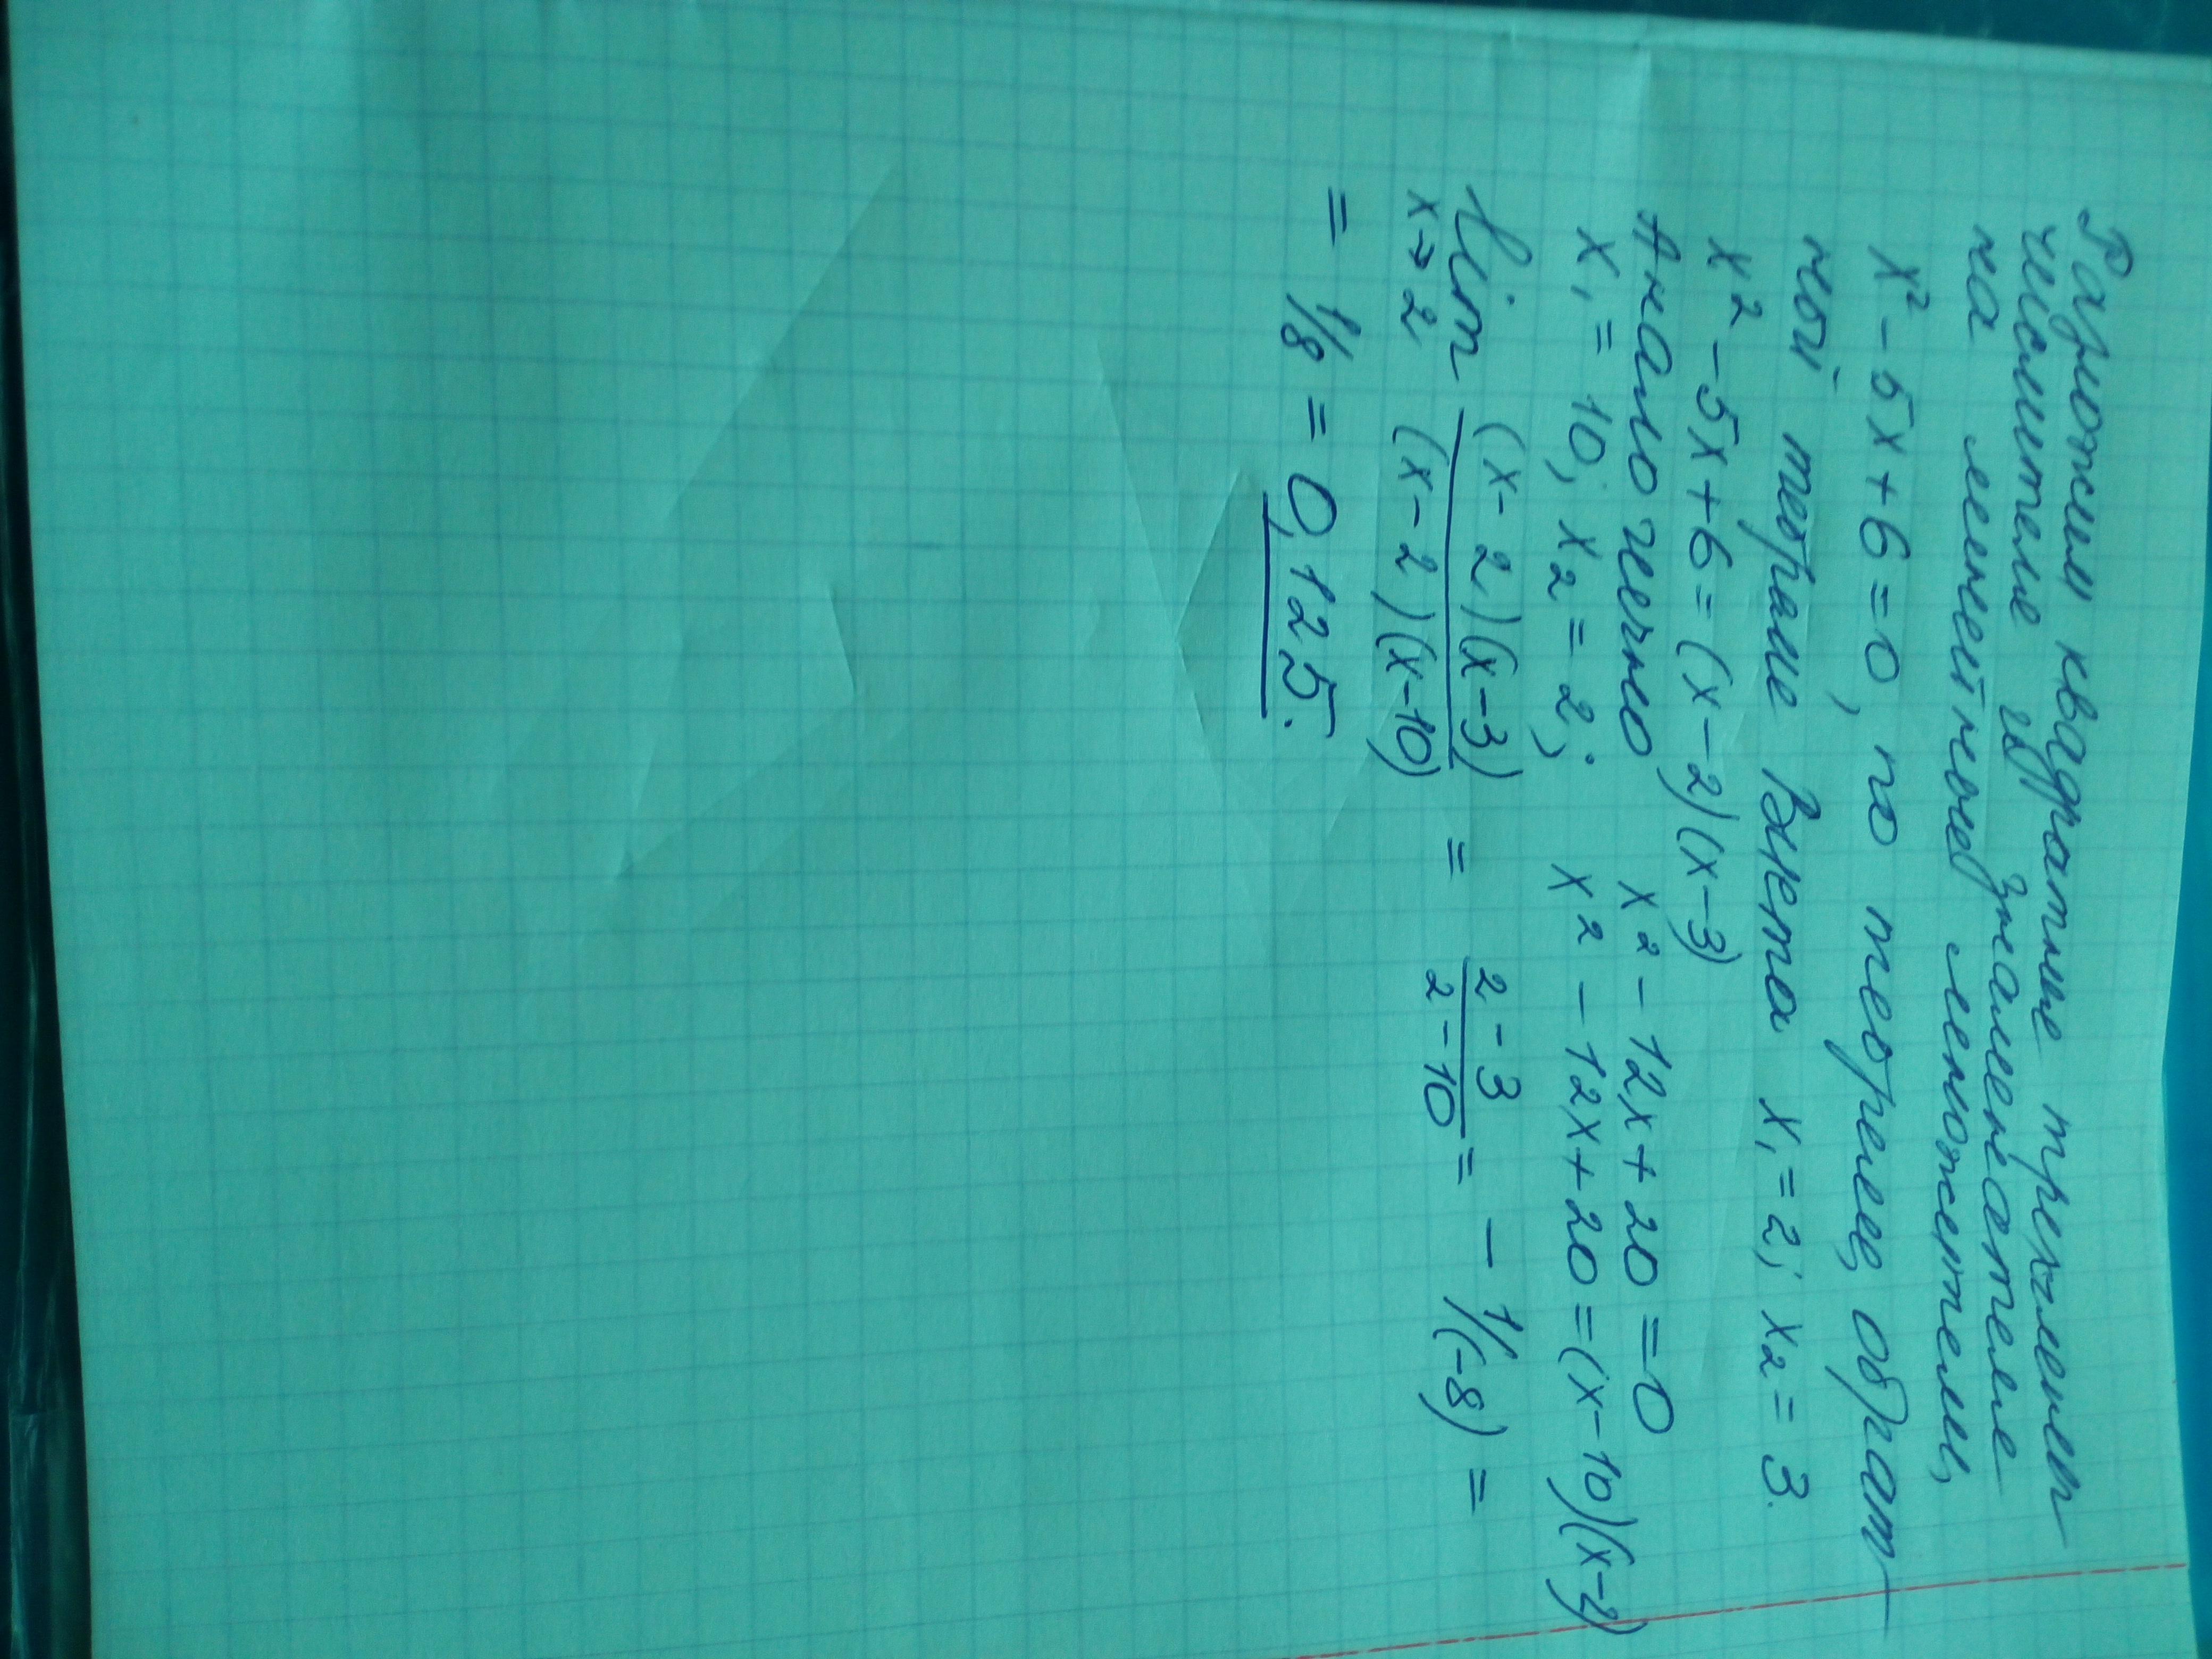 Разложим квадратные трехчлены
числителе и знаменателе
на линейные множители,
x² - 5x + 6 = 0, по теореме, обрат-
ной теореме Виета x₁ = 2; x₂ = 3.
x² - 5x + 6 = (x - 2)(x - 3)
Аналогично x² - 12x + 20 = 0
x₁ = 10; x₂ = 2; x² - 12x + 20 = (x - 10)(x - 2)
lim x→2 (x - 2)(x - 3) / (x - 2)(x - 10) = 2 - 3 / 2 - 10 = - 1/(-8) =
= 1/8 = 0,125.